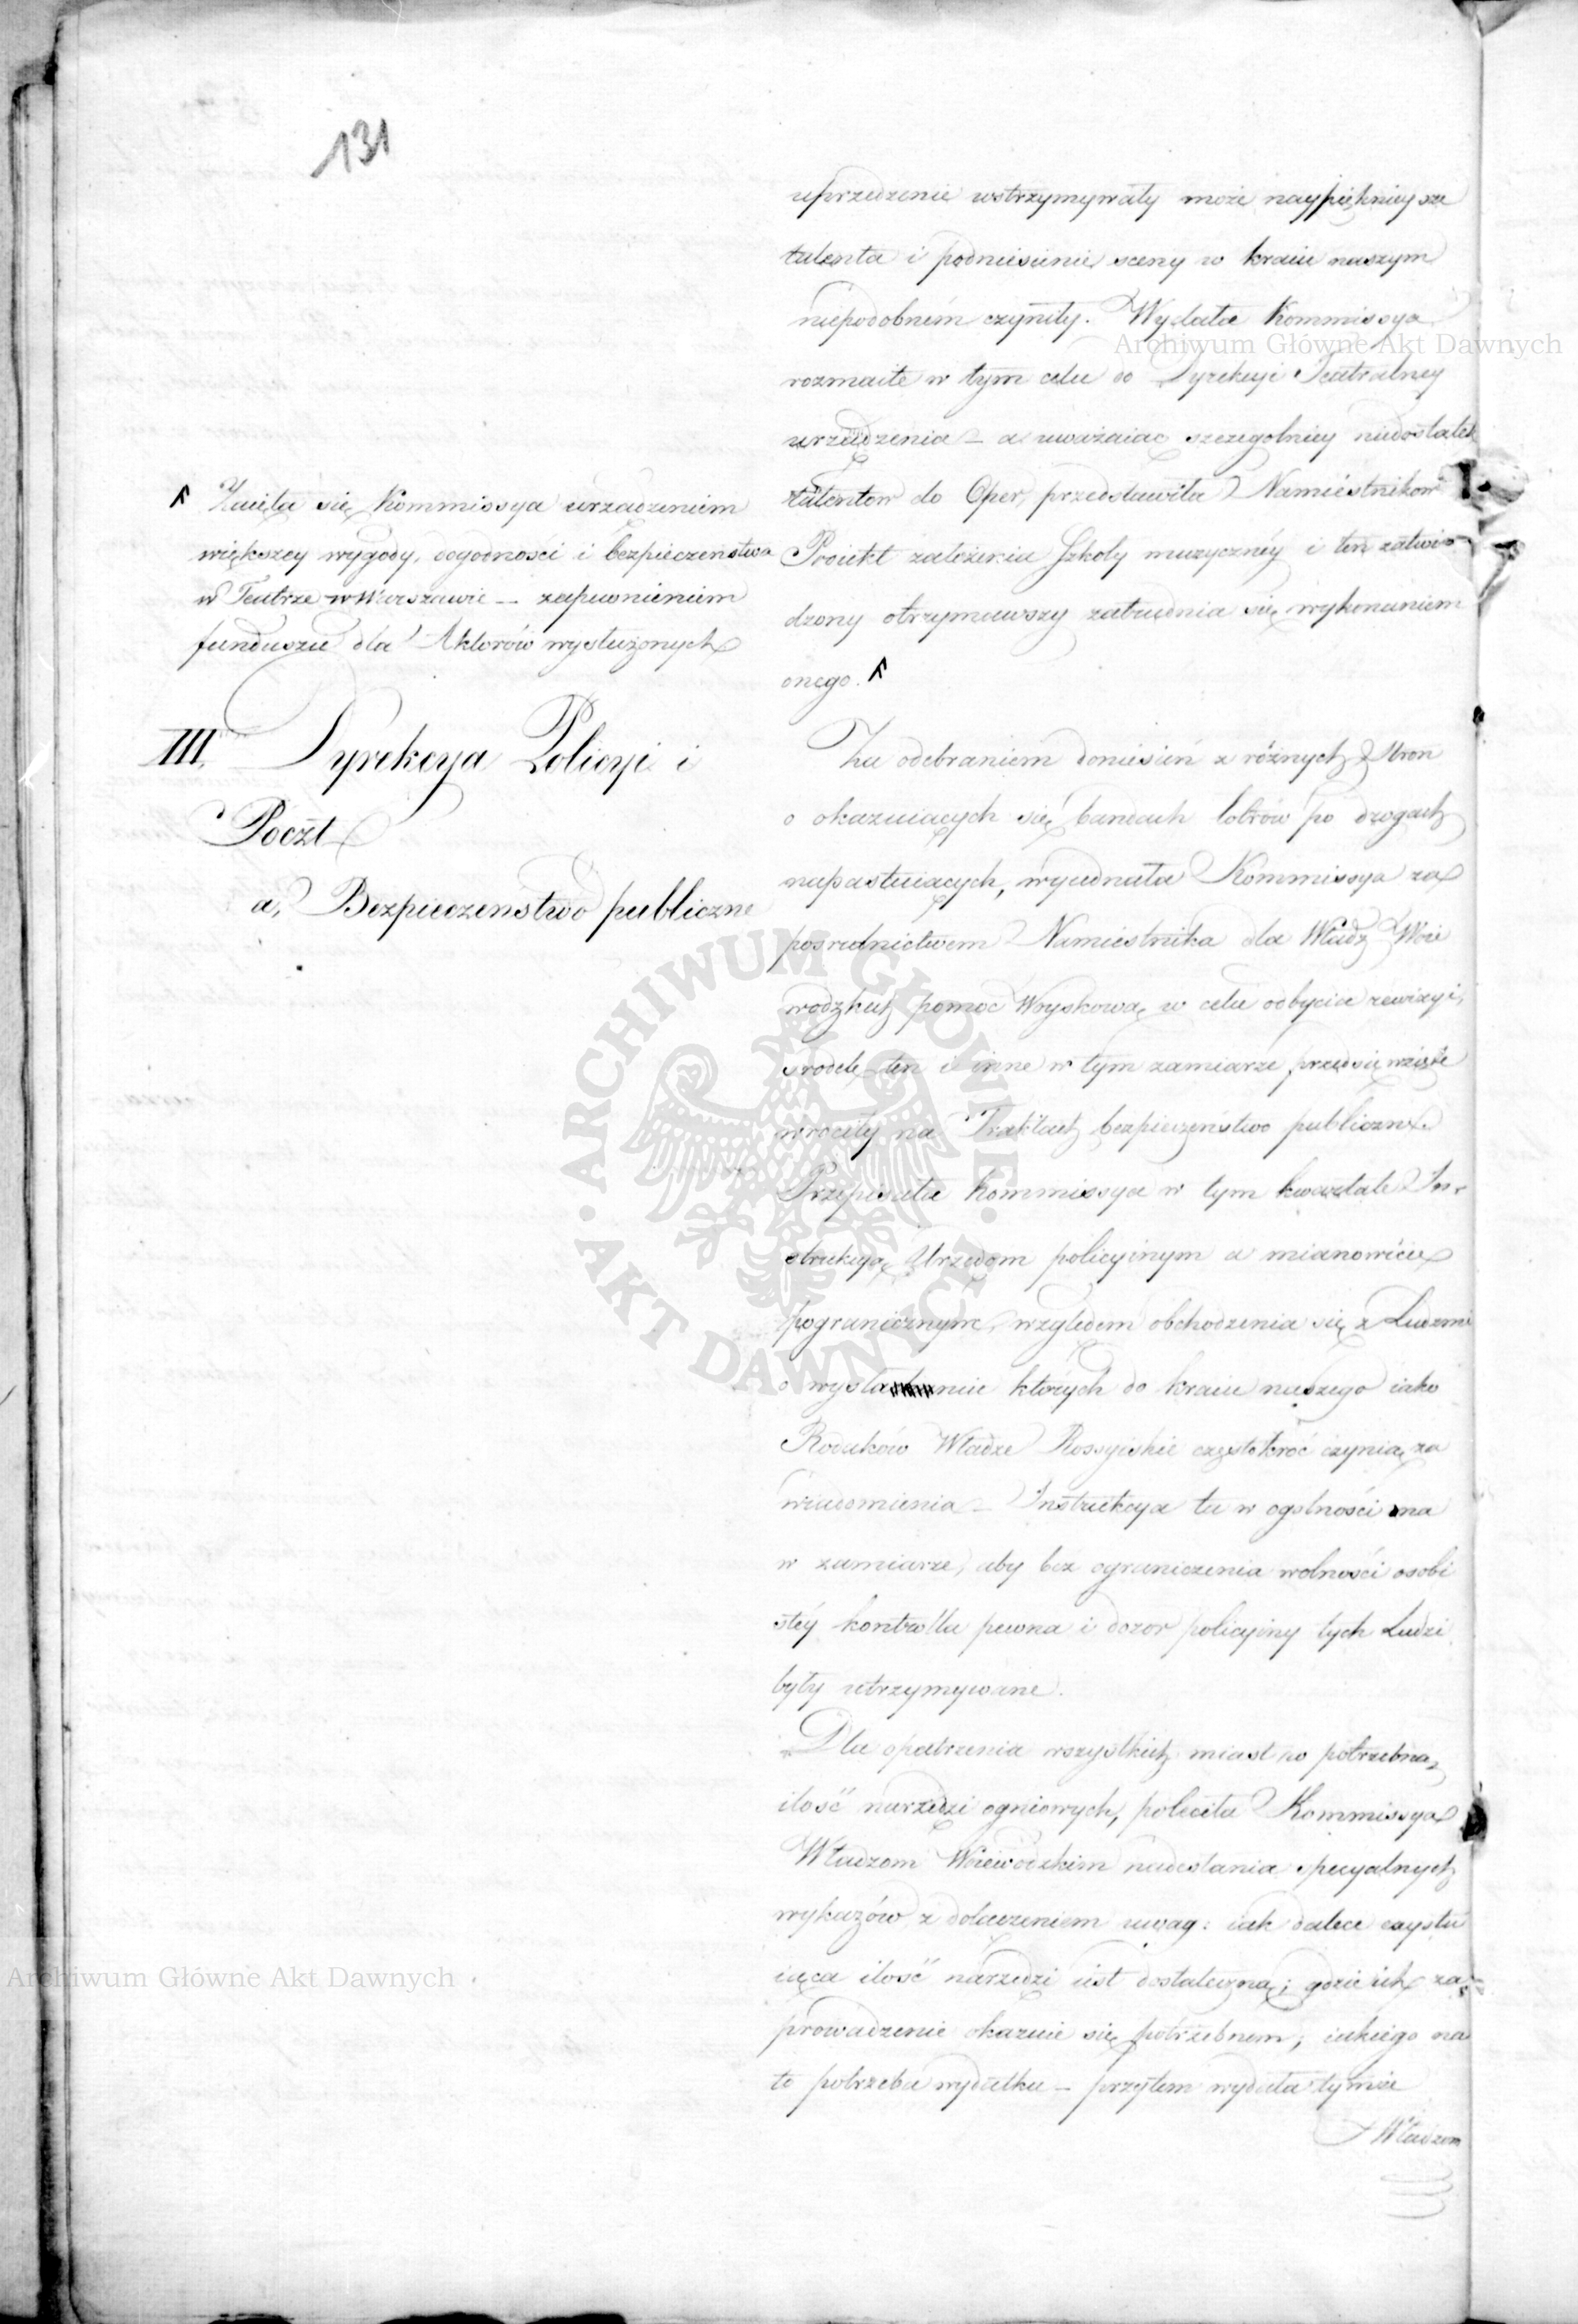 131
uprzedzenie wstrzymywały może naypięknieysze
talenta i podniesienie sceny w kraiu naszym
niepodobném czyniły. Wydała Kommissya
rozmaite w tym celu do Dyrekcyi Teatralney
urządzenia – a uważaiąc szczegolniey niedostatek
talentow do Oper, przedstawiła Namiestnikowi
Proiekt założenia Szkoły muzycznéy i ten zatwier
dzony otrzymawszy zatrudnia się wykonaniem
onego.
Zaięła się Kommissya urządzeniem
większey wygody, dogodności i bezpieczeństwa
w Teatrze w Warszawie – zapewnieniem
funduszu dla Aktorów wysłużonych
III. Dyrekcya Policyi i
Poczt
a, Bezpieczenstwo publiczne
Za odebraniem doniesień z różnych Stron
o okazuiących się bandach łotrów po drogach
napastuiących, wyiednała Kommissya za
posrednictwem Namiestnika dla Władz Woie
wodzkich pomoc Woyskową w celu odbycia rewizyi,
srodek ten i inne w tym zamiarze przedsięwzięte
wrociły na Traktach bezpieczeństwo publiczne.
Przepisała Kommissya w tym kwartale In-
strukcyą Urzędom policyinym a mianowicie
pogranicznym, względem obchodzenia się z Ludzmi
o wysłanie których do kraiu naszego iako
Rodaków Władze Rossyiskie częstokroć czynią za
wiadomienia – Instrukcya ta w ogolności ma
w zamiarze, aby bez ograniczenia wolności osobi
stéy kontrolla pewna i dozor policyiny tych Ludzi
były utrzymywane.
Dla opatrzenia wszystkich miast w potrzebną
ilość narzędzi ogniowych, poleciła Kommissya
Władzom Woiewodzkim nadesłania specyalnych
wykazów z dołączeniem uwag: iak dalece exystu
iąca ilość narzędzi iest dostateczną; gdzie ich za
prowadzenie okazuie się potrzebnem; iakiego na
to potrzeba wydatku – przytem wydała tymże
Władzom
Archiwum Główne Akt Dawnych
Archiwum Główne Akt Dawnych
ARCHIWUM GŁÓWNE
AKT DAWNYCH